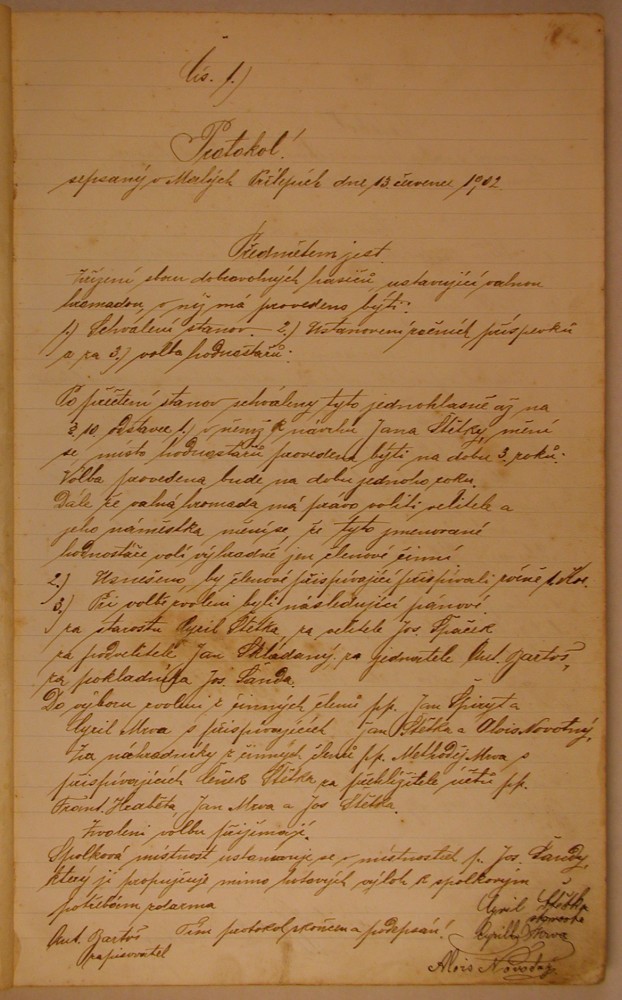 Čís. 1.)
Protokol!
sepsaný v Malých Přílepích dne 13. července 1902
Předmětem jest
zřízení sboru dobrovolných hasičů, ustavující valnou
hromadou, v níž má provedeno býti:
1.) Schválení stanov. 2.) Ustanovení ročních příspěvků
a za 3.) volba hodnostářů:
Po přečtení stanov schváleny tyto jednohlasně až na
§. 10. odstavec 1.) v němž k návrhu Jana Štětky, mění
se místo hodnostářů provedena býti na dobu 3. roků:
Volba provedena bude na dobu jednoho roku.
Dále že valná hromada má právo voliti velitele a
jeho náměstka mění se, že tyto jmenované
hodnostáře volí výhradně jen členové činní
2.) Usnešeno, by členové přispívající přispívali ročně 1. Kor.
3.) Při volbě zvoleni byli následující pánové:
za starostu Cyril Štětka, za velitele Jos. Špaček
za podvelitele Jan Skladaný, za jednatele Ant. Bartoš,
za pokladníka Jos. Šanda.
Do výboru zvoleni z činných členů pp. Jan Špiryt a
Cyril Mrva s přispívajících Jan Štětka a Alois Novotný,
Za náhradníky z činných členů pp. Methoděj Mrva s
přispívajících Čeněk Štětka za přehlížitele účtů pp.
Frant. Jan Mrva a Jos Štětka.
Zvolení volbu přijímají.
Spolková místnost ustanovuje se v místnostech p. Jos. Šandy,
který ji propůjčuje mimo hotových výloh k spolkovým
potřebám zdarma
Cyril Štětka
starosta
Tím protokol skončen a podepsán!
Cyrill Mrva
Ant. Bartoš
zapisovatel
Alois Novotný